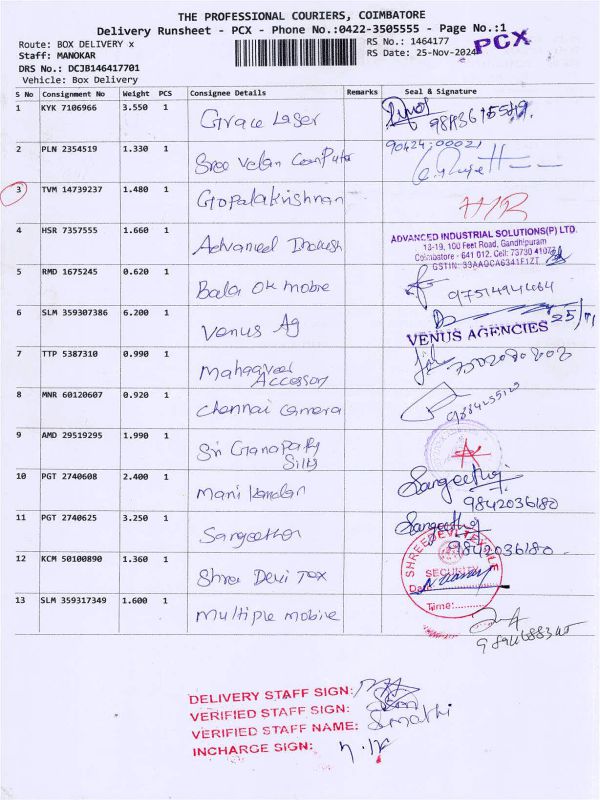 THE PROFESSIONAL COURIERS, COIMBATORE
Delivery Runsheet - PCX - Phone No.:0422-3505555 - Page No.:1
Route: BOX DELIVERY x
RS No.: 1464177
PCX
Staff: MANOKAR
RS Date: 25-Nov-2024
DRS No.: DCJB146417701
Vehicle: Box Delivery
S No Consignment No Weight PCS Consignee Details Remarks Seal & Signature
1 KYK 7106966 3.550 1 Grace Laser
2 PLN 2354519 1.330 1 Sree Velan Computer 90424:00021
3 TVM 14739237 1.480 1 Gopalakrishnan
4 HSR 7357555 1.660 1 Advanced
ADVANCED INDUSTRIAL SOLUTIONS(P) LTD.
13-19, 100 Feet Road, Gandhipuram
Coimbatore - 641 012. Cell: 73730 41072
GSTIN: 33AAOCA6341F1ZT
5 RMD 1675245 0.620 1 Bala OK mobile
6 SLM 359307386 6.200 1 Venus Ag
VENUS AGENCIES 25/11
7 TTP 5387310 0.990 1 Mahaaveer
Accessory
8 MNR 60120607 0.920 1 Chennai Camera
9 AMD 29519295 1.990 1 Sri Ganapathy
Silks
10 PGT 2740608 2.400 1 Manikandan Sangeetha
9842036180
11 PGT 2740625 3.250 1 Sangeetha Sangeetha
9842036180
12 KCM 50100890 1.360 1 Shree Devi Tex
SHREEDEVI TEXTILE
SECURITY
Date
Time:
13 SLM 359317349 1.600 1 Multiple mobile
DELIVERY STAFF SIGN:
VERIFIED STAFF SIGN:
VERIFIED STAFF NAME: Sumathi
INCHARGE SIGN: